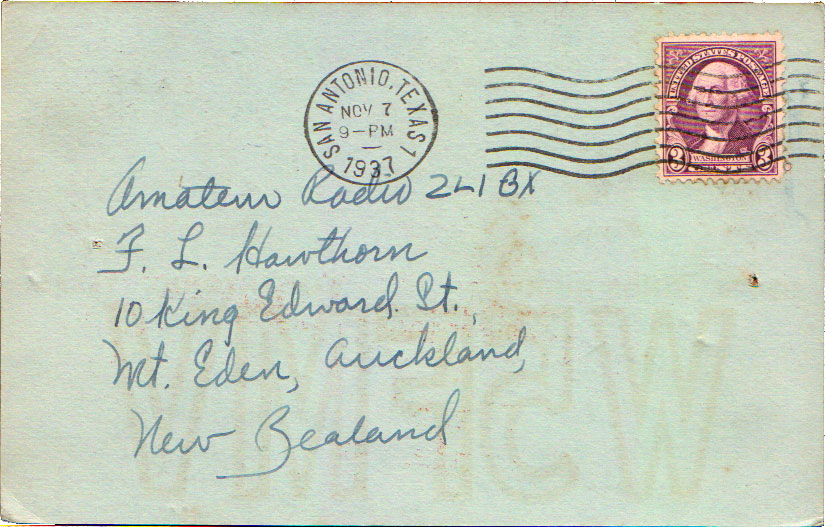 SAN ANTONIO, TEXAS 1
NOV 7
9-PM
1937
UNITED STATES POSTAGE
3 WASHINGTON 3
Amateur Radio ZL1BX
F. L. Hawthorn
10 King Edward St.,
Mt. Eden, Auckland,
New Zealand